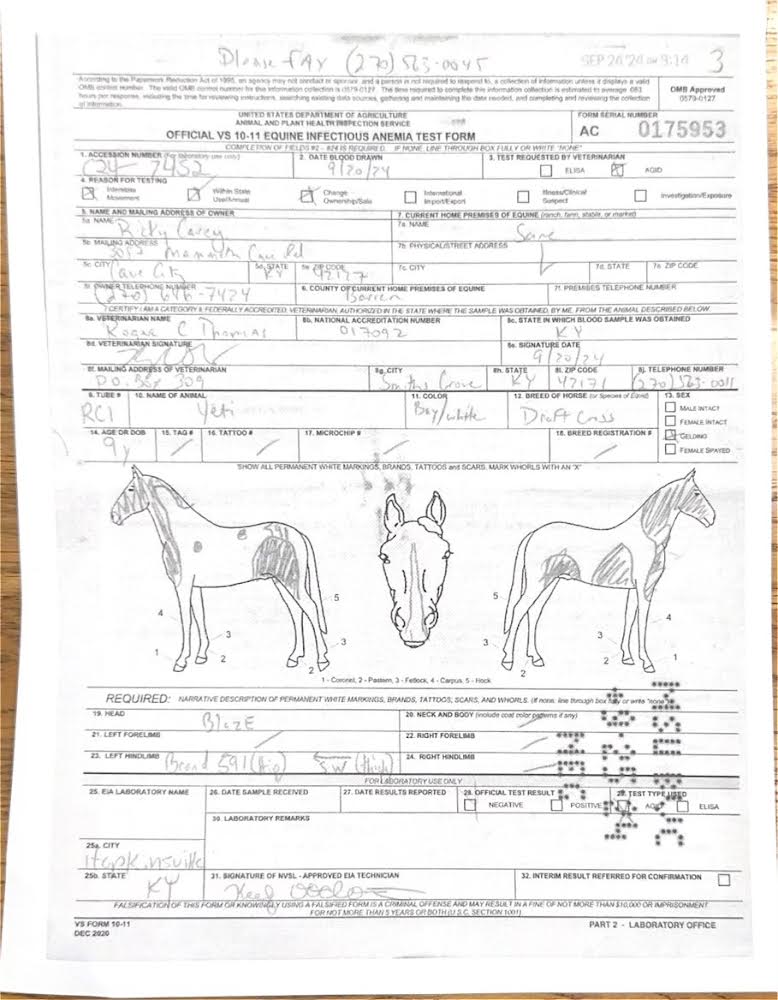 Please FAX (270) 563-0045
SEP 20 '24 PM 3:14
3
According to the Paperwork Reduction Act of 1995, an agency may not conduct or sponsor, and a person is not required to respond to, a collection of information unless it displays a valid
OMB control number. The valid OMB control number for this information collection is 0579-0127. The time required to complete this information collection is estimated to average .083
hours per response, including the time for reviewing instructions, searching existing data sources, gathering and maintaining the data needed, and completing and reviewing the collection
of information.
OMB Approved
0579-0127
UNITED STATES DEPARTMENT OF AGRICULTURE
ANIMAL AND PLANT HEALTH INSPECTION SERVICE
OFFICIAL VS 10-11 EQUINE INFECTIOUS ANEMIA TEST FORM
FORM SERIAL NUMBER
AC 0175953
COMPLETION OF FIELDS #2 - #24 IS REQUIRED. IF NONE, LINE THROUGH BOX FULLY OR WRITE "NONE"
1. ACCESSION NUMBER (For laboratory use only)
C24-7452
2. DATE BLOOD DRAWN
9/20/24
3. TEST REQUESTED BY VETERINARIAN
ELISA AGID
4. REASON FOR TESTING
Interstate Movement
Within State Use/Annual
Change Ownership/Sale
International Import/Export
Illness/Clinical Suspect
Investigation/Exposure
5. NAME AND MAILING ADDRESS OF OWNER
5a. NAME
Ricky Carey
5b. MAILING ADDRESS
Mammoth Cave Rd
5c. CITY
Cave City
5d. STATE
KY
5e. ZIP CODE
42127
5f. OWNER TELEPHONE NUMBER
(270) 646-7424
6. COUNTY OF CURRENT HOME PREMISES OF EQUINE
Barren
7. CURRENT HOME PREMISES OF EQUINE (ranch, farm, stable, or market)
7a. NAME
Same
7b. PHYSICAL/STREET ADDRESS
7c. CITY
7d. STATE
7e. ZIP CODE
7f. PREMISES TELEPHONE NUMBER
I CERTIFY I AM A CATEGORY II, FEDERALLY ACCREDITED, VETERINARIAN, AUTHORIZED IN THE STATE WHERE THE SAMPLE WAS OBTAINED, BY ME, FROM THE ANIMAL DESCRIBED BELOW
8a. VETERINARIAN NAME
C Thomas
8b. NATIONAL ACCREDITATION NUMBER
017092
8c. STATE IN WHICH BLOOD SAMPLE WAS OBTAINED
KY
8d. VETERINARIAN SIGNATURE
8e. SIGNATURE DATE
9/20/24
8f. MAILING ADDRESS OF VETERINARIAN
P.O. Box 309
8g. CITY
Smiths Grove
8h. STATE
KY
8i. ZIP CODE
42171
8j. TELEPHONE NUMBER
(270) 563-0011
9. TUBE #
RC1
10. NAME OF ANIMAL
Yeti
11. COLOR
Bay/white
12. BREED OF HORSE (or Species of Equid)
Draft Cross
13. SEX
MALE INTACT
FEMALE INTACT
GELDING
FEMALE SPAYED
14. AGE OR DOB
9y
15. TAG #
16. TATTOO #
17. MICROCHIP #
18. BREED REGISTRATION #
SHOW ALL PERMANENT WHITE MARKINGS, BRANDS, TATTOOS and SCARS. MARK WHORLS WITH AN "X"
591
4 1 3 2 5 3 2
5 3 2 3 4 1
1 - Coronet, 2 - Pastern, 3 - Fetlock, 4 - Carpus, 5 - Hock
REQUIRED: NARRATIVE DESCRIPTION OF PERMANENT WHITE MARKINGS, BRANDS, TATTOOS, SCARS, AND WHORLS. (If none, line through box fully or write "none")
19. HEAD
Blaze
20. NECK AND BODY (include coat color patterns if any)
21. LEFT FORELIMB
22. RIGHT FORELIMB
23. LEFT HINDLIMB
Brand 591 (Hip) SW (thigh)
24. RIGHT HINDLIMB
FOR LABORATORY USE ONLY
25. EIA LABORATORY NAME
26. DATE SAMPLE RECEIVED
27. DATE RESULTS REPORTED
28. OFFICIAL TEST RESULT
NEGATIVE POSITIVE
29. TEST TYPE USED
AGID ELISA
30. LABORATORY REMARKS
25a. CITY
Hopkinsville
25b. STATE
KY
31. SIGNATURE OF NVSL - APPROVED EIA TECHNICIAN
32. INTERIM RESULT REFERRED FOR CONFIRMATION
FALSIFICATION OF THIS FORM OR KNOWINGLY USING A FALSIFIED FORM IS A CRIMINAL OFFENSE AND MAY RESULT IN A FINE OF NOT MORE THAN $10,000 OR IMPRISONMENT
FOR NOT MORE THAN 5 YEARS OR BOTH (U.S.C. SECTION 1001).
VS FORM 10-11
DEC 2020
PART 2 - LABORATORY OFFICE